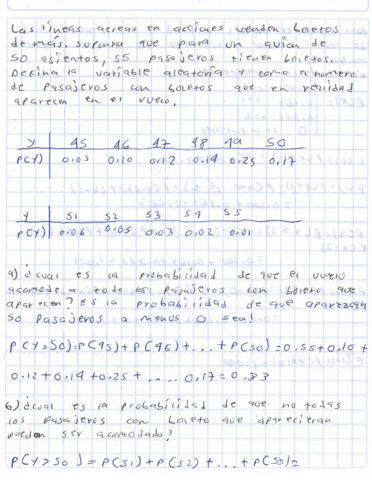 Las lineas aereas en acciones venden boletos
de más. suponga que para un avion de
50 asientos, 55 pasajeros tienen boletos.
Defina la variable aleatoria Y como el numero
de pasajeros con boletos que en realidad
aparecen en el vuelo.
Y 45 46 47 48 49 50
P(Y) 0.05 0.10 0.12 0.14 0.25 0.17
Y 51 52 53 54 55
P(Y) 0.06 0.05 0.03 0.02 0.01
a) ¿cual es la probabilidad de que el vuelo
acomode a todos los pasajeros con boleto que
aparecen? Es la probabilidad de que aparezcan
50 pasajeros a menos O sea!
P(Y=50)=P(45)+P(46)+...+P(50)=0.55+0.10+
0.12+0.14+0.25+....0.17=0.83
b) ¿cual es la probabilidad de que no todos
los pasajeros con boleto que aparecieran
pueden ser acomodado?
P(Y>50)=P(51)+P(52)+...+P(55)=